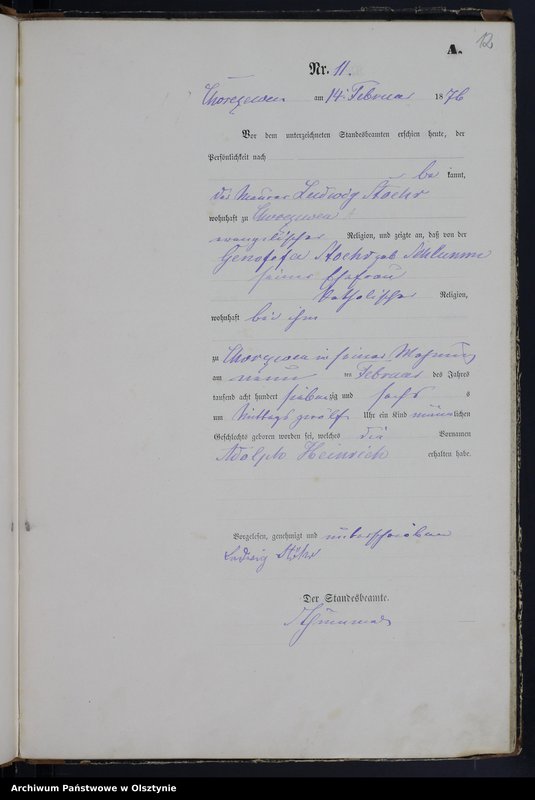 12
A.
Nr. 11.
Chorezewen am 14. Februar 1876
Vor dem unterzeichneten Standesbeamten erschien heute, der
Persönlichkeit nach
be kannt,
der Maurer Ludwig Stoehr
wohnhaft zu
evangelischer Religion, und zeigte an, daß von der
Genofefa Stoehr geb
seiner Ehefrau
katholischer Religion,
wohnhaft bei ihm
zu in seiner Wohnung
am neun ten Februar des Jahres
tausend acht hundert siebenzig und sechs s
um Mittags zwölf Uhr ein Kind männlichen
Geschlechts geboren worden sei, welches die Vornamen
Adolph Heinrich erhalten habe.
Vorgelesen, genehmigt und unterschrieben
Ludwig Stöhr
Der Standesbeamte.
Archiwum Państwowe w Olsztynie